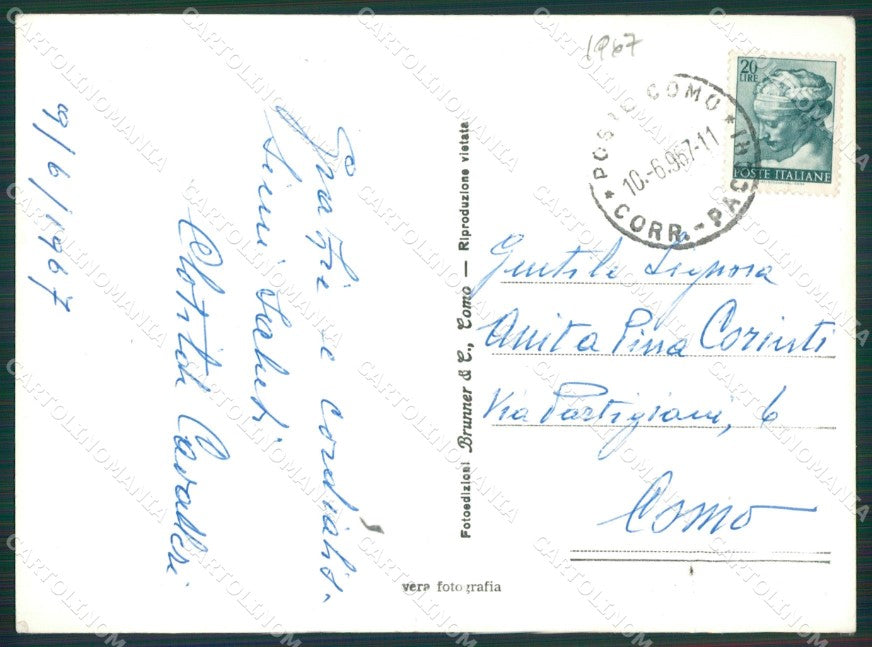 1967
20
LIRE
POSTE ITALIANE
POSTE COMO
10.-6.967-11
CORR.-PAC
9/6/1967
Grazie e cordialis-
simi saluti
Clotilde Cavalleri
Gentile Signora
Anita Pina Corinti
Via Partigiani, 6
Como
Fotoedizioni Brunner & C., Como — Riproduzione vietata
vera fotografia
CARTOLINOMANIA